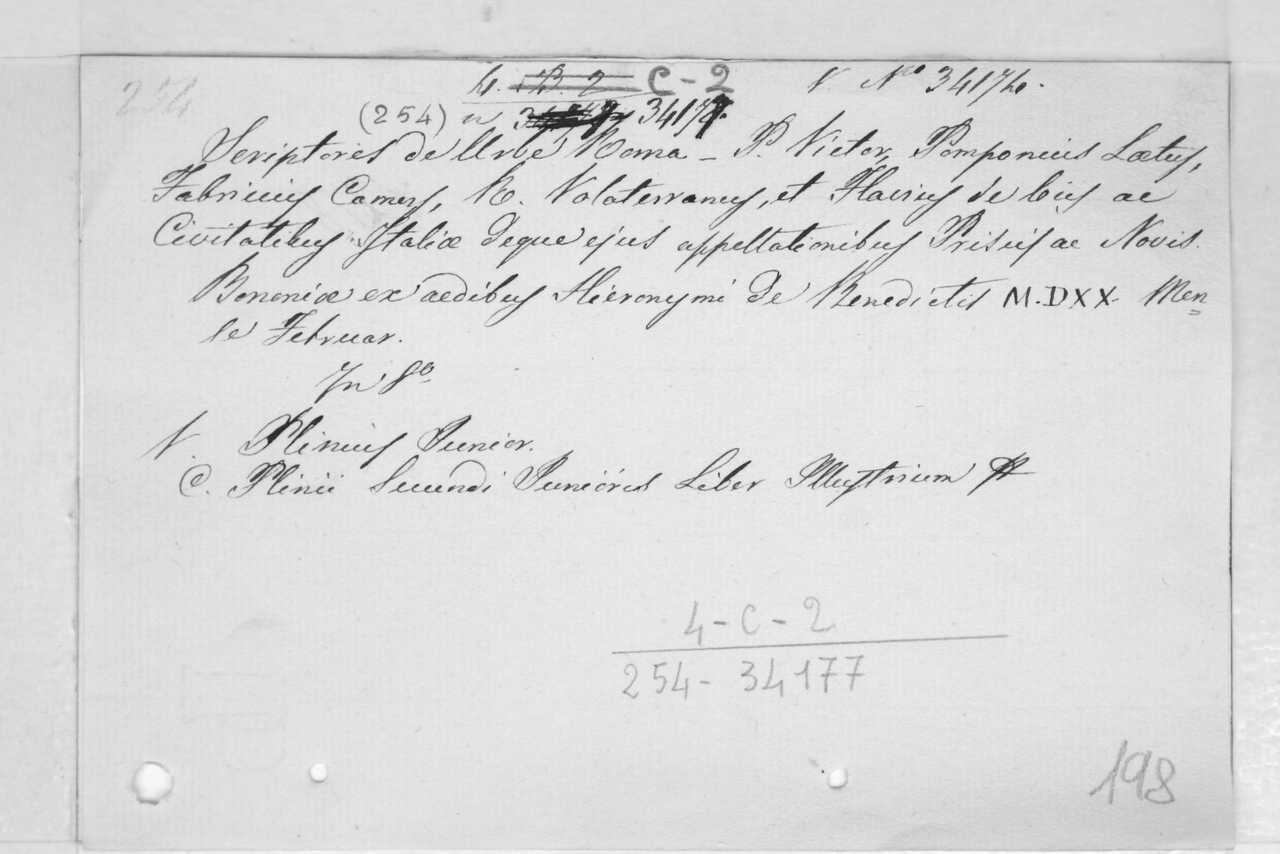 254
4. B. 2 C-2 V. Nº 34174.
(254) n 34178.
Scriptores de Urbe Roma – P. Victor, Pomponius Lætus,
Fabricius Camers, R. Volaterranus, et Flavius de bis ac
Civitatibus Italiæ deque ejus appellationibus Priscis ac Novis.
Bononiæ ex aedibus Hieronymi de Benedictis M.DXX. Men=
se Februar.
In 8º
V. Plinius Junior.
C. Plinii Secundi Junioris Liber Illustrium
4-C-2
254- 34177
198